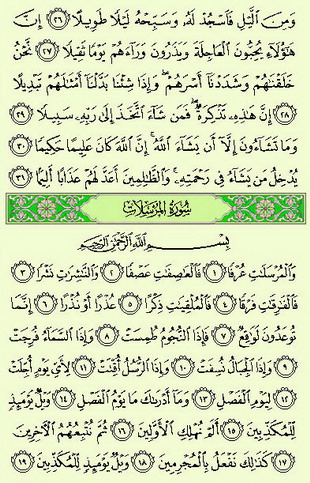 وَمِنَ ٱلَّيْلِ فَٱسْجُدْ لَهُۥ وَسَبِّحْهُ لَيْلًا طَوِيلًا ﴿٢٦﴾ إِنَّ
هَٰٓؤُلَآءِ يُحِبُّونَ ٱلْعَاجِلَةَ وَيَذَرُونَ وَرَآءَهُمْ يَوْمًا ثَقِيلًا ﴿٢٧﴾ نَّحْنُ
خَلَقْنَٰهُمْ وَشَدَدْنَآ أَسْرَهُمْ ۖ وَإِذَا شِئْنَا بَدَّلْنَآ أَمْثَٰلَهُمْ تَبْدِيلًا
﴿٢٨﴾ إِنَّ هَٰذِهِۦ تَذْكِرَةٌ ۖ فَمَن شَآءَ ٱتَّخَذَ إِلَىٰ رَبِّهِۦ سَبِيلًا ﴿٢٩﴾
وَمَا تَشَآءُونَ إِلَّآ أَن يَشَآءَ ٱللَّهُ ۚ إِنَّ ٱللَّهَ كَانَ عَلِيمًا حَكِيمًا ﴿٣٠﴾
يُدْخِلُ مَن يَشَآءُ فِى رَحْمَتِهِۦ ۚ وَٱلظَّٰلِمِينَ أَعَدَّ لَهُمْ عَذَابًا أَلِيمًۢا ﴿٣١﴾
سُورَةُ المُرْسَلَاتِ
بِسْمِ ٱللَّهِ ٱلرَّحْمَٰنِ ٱلرَّحِيمِ
وَٱلْمُرْسَلَٰتِ عُرْفًا ﴿١﴾ فَٱلْعَٰصِفَٰتِ عَصْفًا ﴿٢﴾ وَٱلنَّٰشِرَٰتِ نَشْرًا ﴿٣﴾
فَٱلْفَٰرِقَٰتِ فَرْقًا ﴿٤﴾ فَٱلْمُلْقِيَٰتِ ذِكْرًا ﴿٥﴾ عُذْرًا أَوْ نُذْرًا ﴿٦﴾ إِنَّمَا
تُوعَدُونَ لَوَٰقِعٌ ﴿٧﴾ فَإِذَا ٱلنُّجُومُ طُمِسَتْ ﴿٨﴾ وَإِذَا ٱلسَّمَآءُ فُرِجَتْ
﴿٩﴾ وَإِذَا ٱلْجِبَالُ نُسِفَتْ ﴿١٠﴾ وَإِذَا ٱلرُّسُلُ أُقِّتَتْ ﴿١١﴾ لِأَىِّ يَوْمٍ أُجِّلَتْ
﴿١٢﴾ لِيَوْمِ ٱلْفَصْلِ ﴿١٣﴾ وَمَآ أَدْرَىٰكَ مَا يَوْمُ ٱلْفَصْلِ ﴿١٤﴾ وَيْلٌ يَوْمَئِذٍ
لِّلْمُكَذِّبِينَ ﴿١٥﴾ أَلَمْ نُهْلِكِ ٱلْأَوَّلِينَ ﴿١٦﴾ ثُمَّ نُتْبِعُهُمُ ٱلْءَاخِرِينَ
﴿١٧﴾ كَذَٰلِكَ نَفْعَلُ بِٱلْمُجْرِمِينَ ﴿١٨﴾ وَيْلٌ يَوْمَئِذٍ لِّلْمُكَذِّبِينَ ﴿١٩﴾